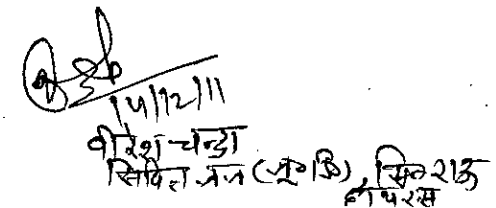 14/12/11
वीरेश चन्द्रा
सिविल जज (जू० डि०), सि० राऊ
हाथरस